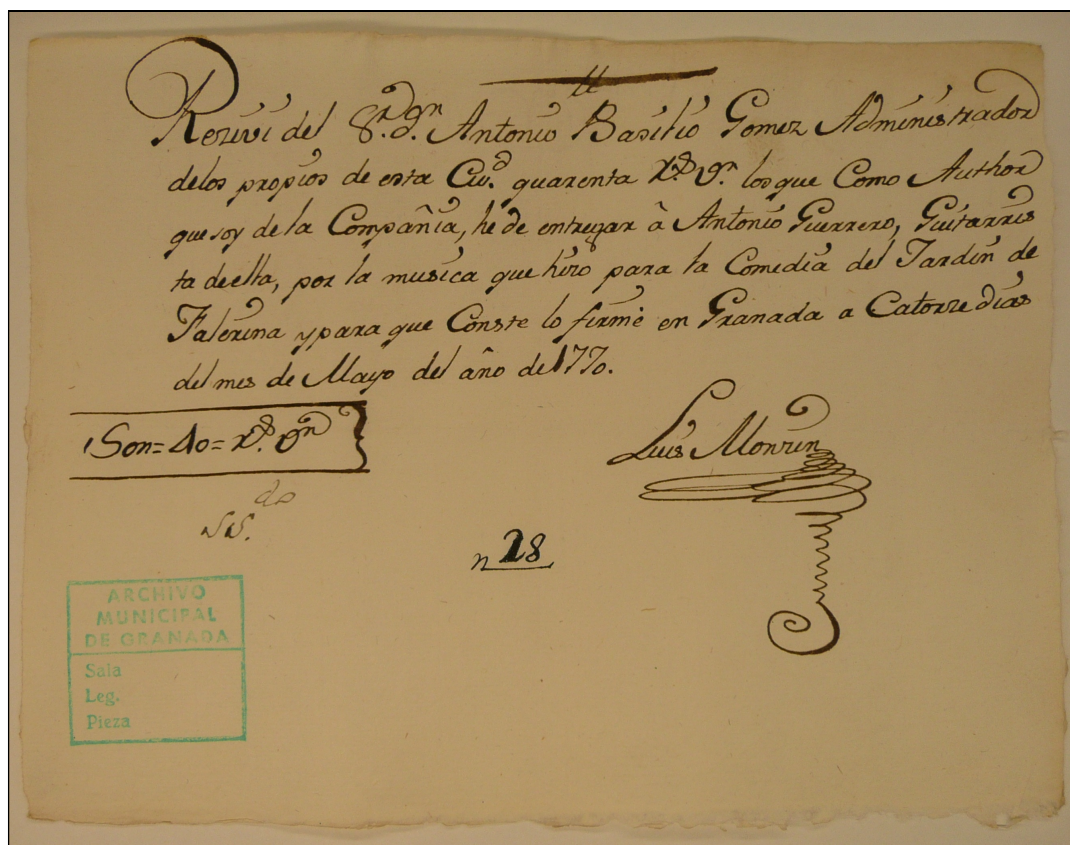 Rezivi del S.r D.n Antonio Basilio Gomez Administrador
delos propios de esta Ciu.d quarenta r.s v.n los que Como Author
que soy de la Compañia, he de entregar â Antonio Guerrero, Guitarris
ta de ella, por la musica que hizo para la Comedia del Jardin de
Falerina y para que Conste lo firmè en Granada a Catorze dias
del mes de Mayo del año de 1770.
Son = 40 = r.s v.n
Luis Monzin
n 28
ARCHIVO
MUNICIPAL
DE GRANADA
Sala
Leg.
Pieza